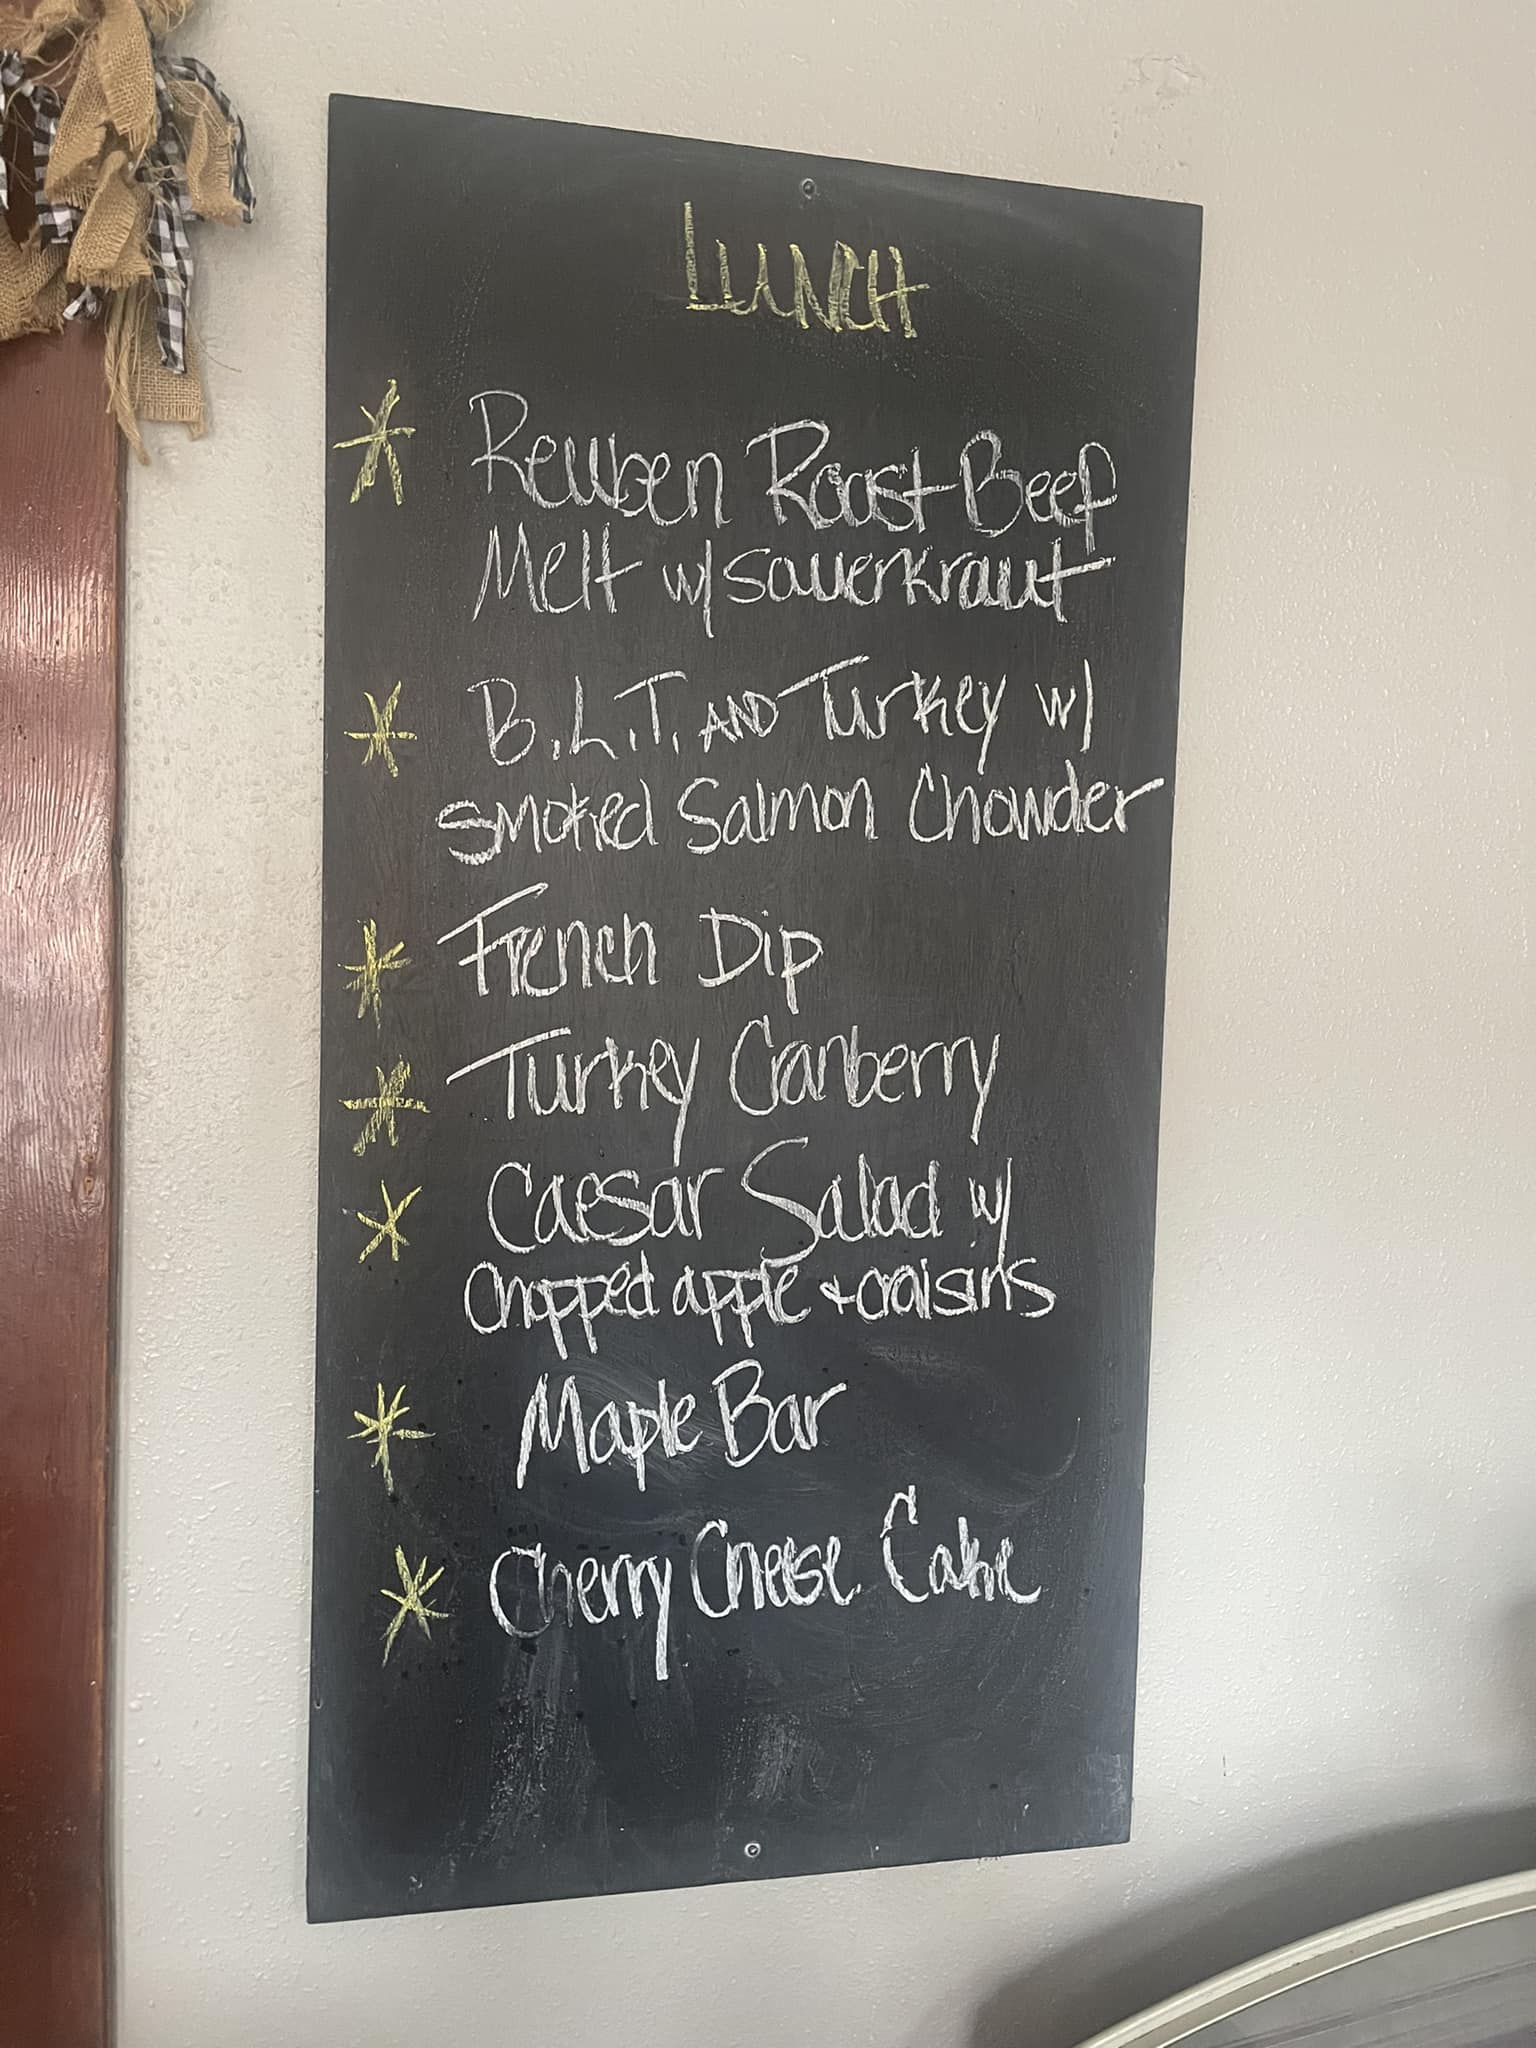 LUNCH
* Reuben Roast Beef
Melt w/ sauerkraut
* B.L.T. AND Turkey w/
smoked Salmon Chowder
* French Dip
* Turkey Cranberry
* Caesar Salad w/
chopped apple + craisins
* Maple Bar
* Cherry Cheese Cake